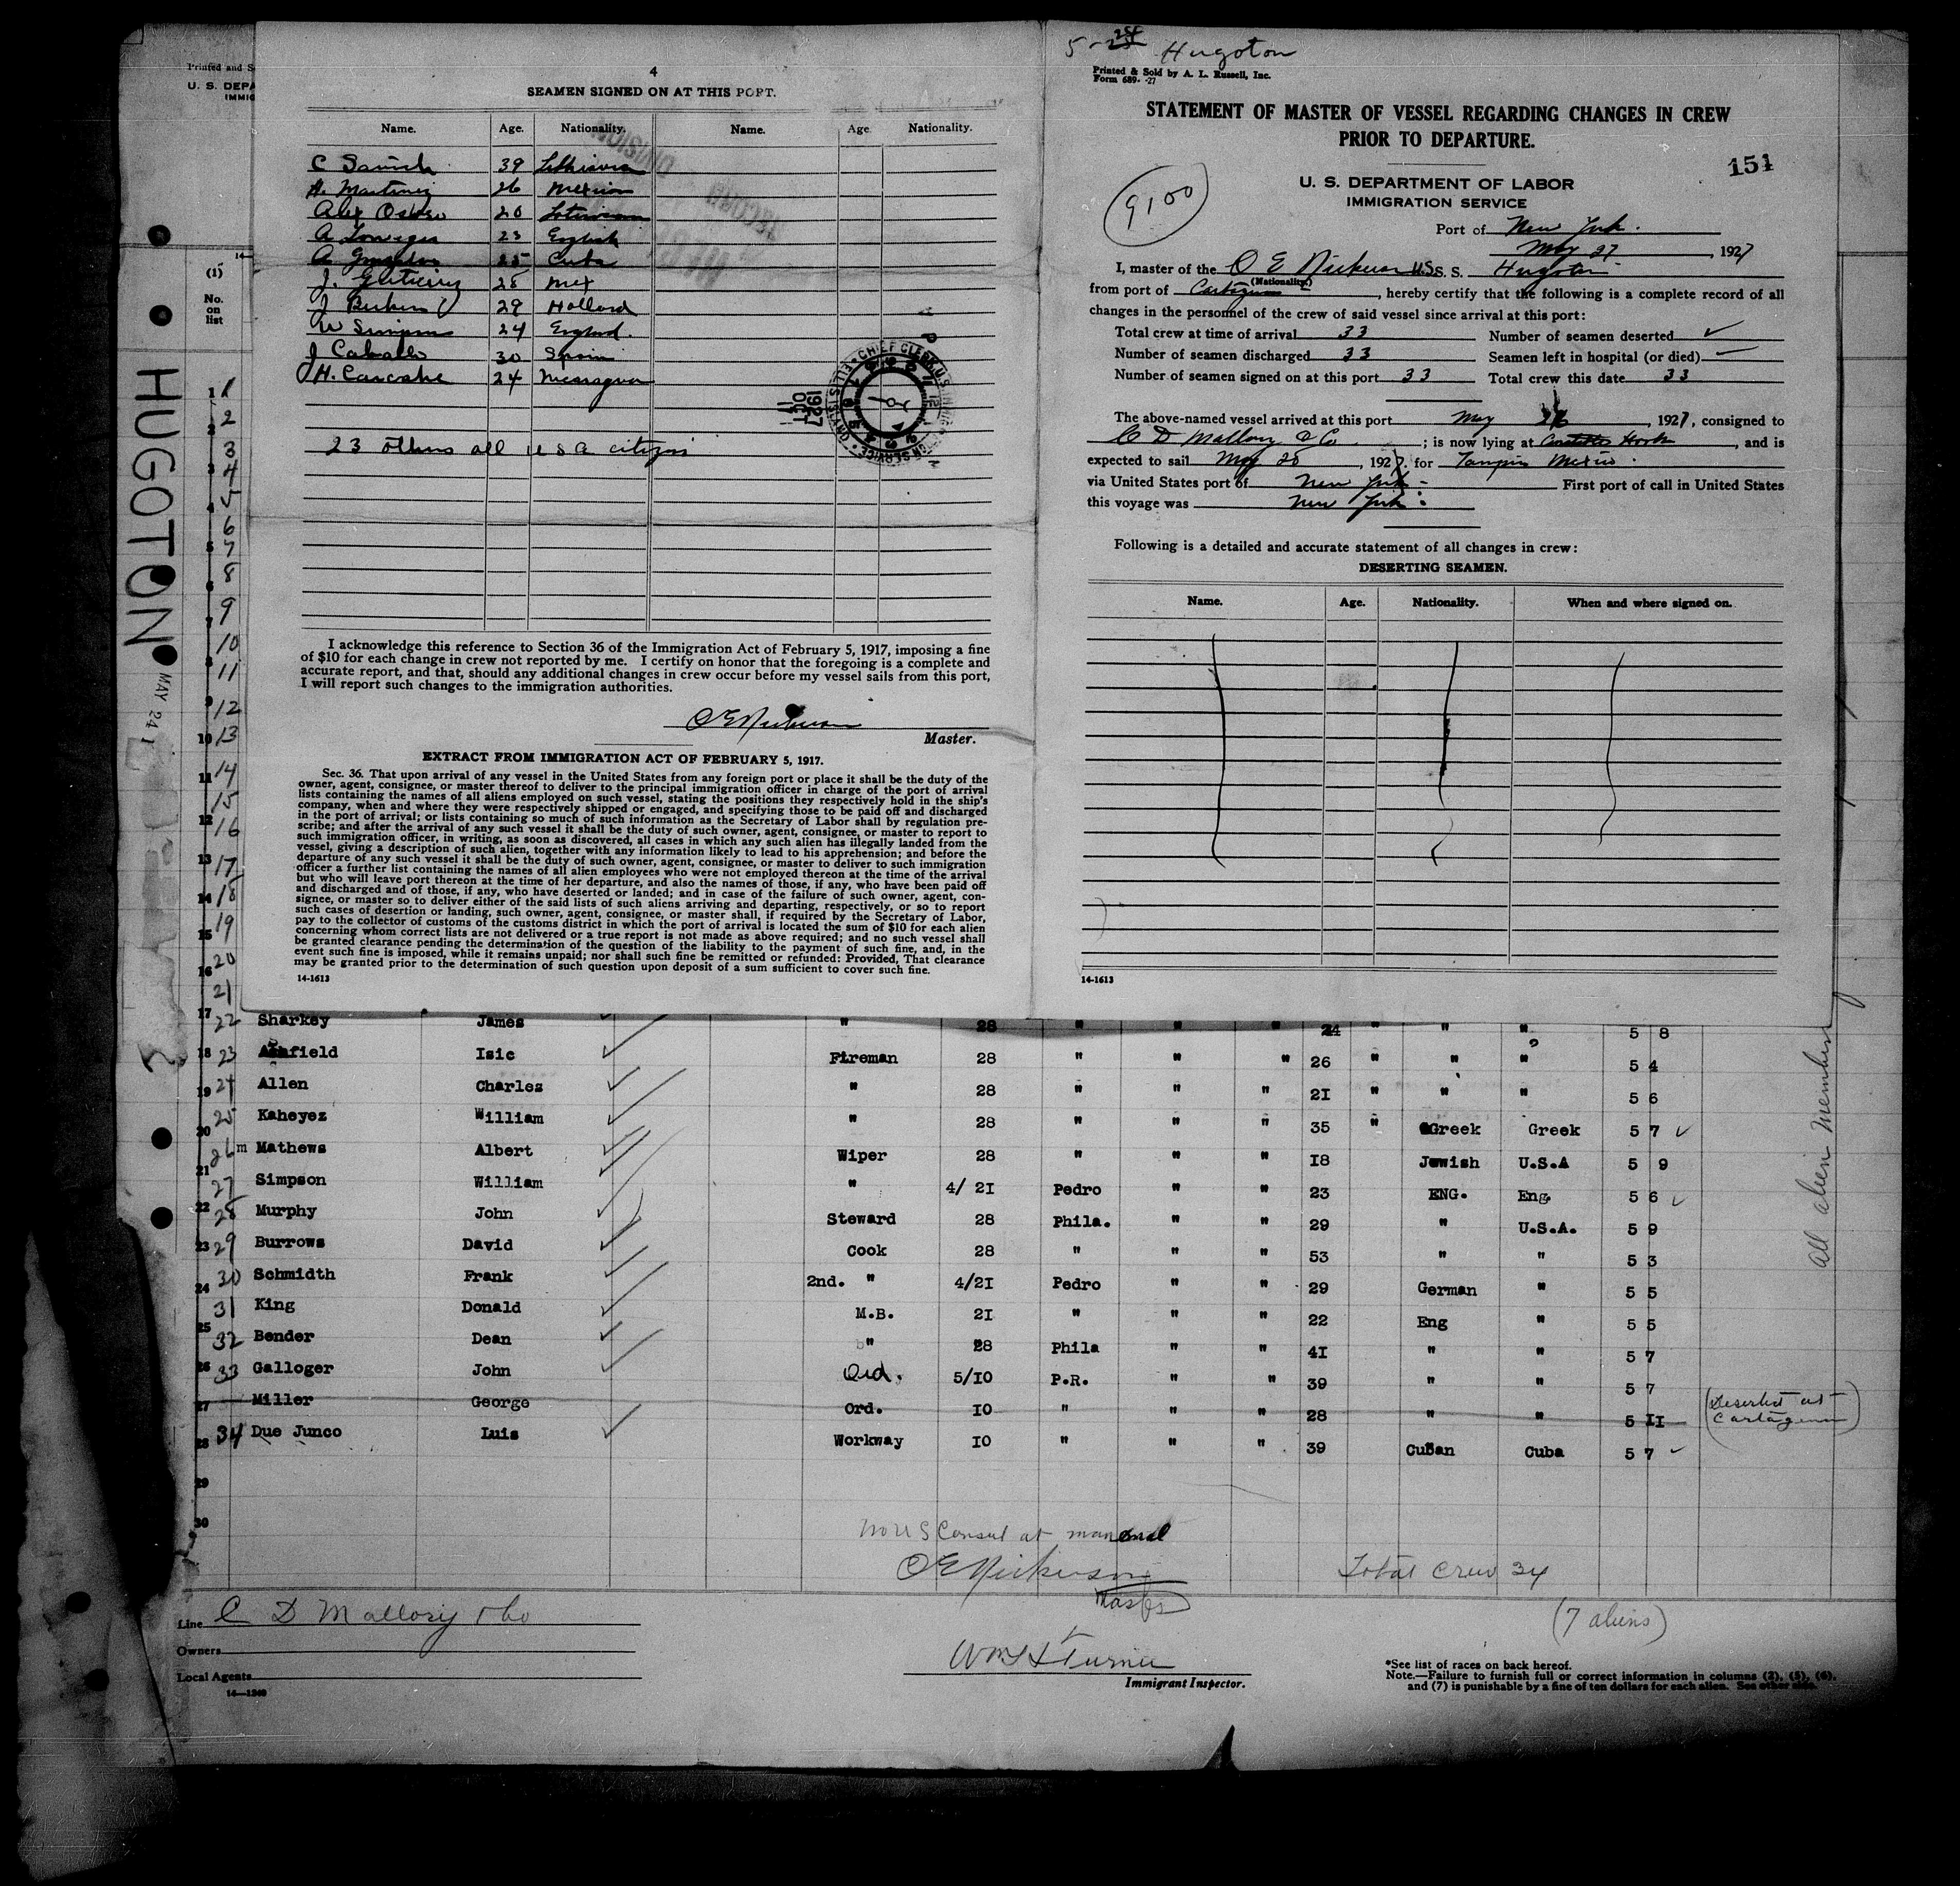 Printed and S
U. S. DEPA
IMMIG
(1)
No.
on
list
HUGOTON
MAY 24 1
4
SEAMEN SIGNED ON AT THIS PORT.
Name. Age. Nationality. Name. Age. Nationality.
C 39
H. Martinez 26 Mexican
Alex 20
A 23 English
A 25 Cuba
J. Gutierrez 28 Mex
J 29 Holland
W Simpson 24 England.
J Caballo 30 Spain
H. 24 Nicaragua
23 others all U S A citizens
I acknowledge this reference to Section 36 of the Immigration Act of February 5, 1917, imposing a fine
of $10 for each change in crew not reported by me. I certify on honor that the foregoing is a complete and
accurate report, and that, should any additional changes in crew occur before my vessel sails from this port,
I will report such changes to the immigration authorities.
O E Nickerson
Master.
EXTRACT FROM IMMIGRATION ACT OF FEBRUARY 5, 1917.
Sec. 36. That upon arrival of any vessel in the United States from any foreign port or place it shall be the duty of the
owner, agent, consignee, or master thereof to deliver to the principal immigration officer in charge of the port of arrival
lists containing the names of all aliens employed on such vessel, stating the positions they respectively hold in the ship's
company, when and where they were respectively shipped or engaged, and specifying those to be paid off and discharged
in the port of arrival; or lists containing so much of such information as the Secretary of Labor shall by regulation pre-
scribe; and after the arrival of any such vessel it shall be the duty of such owner, agent, consignee, or master to report to
such immigration officer, in writing, as soon as discovered, all cases in which any such alien has illegally landed from the
vessel, giving a description of such alien, together with any information likely to lead to his apprehension; and before the
departure of any such vessel it shall be the duty of such owner, agent, consignee, or master to deliver to such immigration
officer a further list containing the names of all alien employees who were not employed thereon at the time of the arrival
but who will leave port thereon at the time of her departure, and also the names of those, if any, who have been paid off
and discharged and of those, if any, who have deserted or landed; and in case of the failure of such owner, agent, con-
signee, or master so to deliver either of the said lists of such aliens arriving and departing, respectively, or so to report
such cases of desertion or landing, such owner, agent, consignee, or master shall, if required by the Secretary of Labor,
pay to the collector of customs of the customs district in which the port of arrival is located the sum of $10 for each alien
concerning whom correct lists are not delivered or a true report is not made as above required; and no such vessel shall
be granted clearance pending the determination of the question of the liability to the payment of such fine, and, in the
event such fine is imposed, while it remains unpaid; nor shall such fine be remitted or refunded: Provided, That clearance
may be granted prior to the determination of such question upon deposit of a sum sufficient to cover such fine.
14-1613
5-24 Hugoton
Printed & Sold by A. L. Russell, Inc.
Form 689- -27
STATEMENT OF MASTER OF VESSEL REGARDING CHANGES IN CREW
PRIOR TO DEPARTURE.
151
9100
U. S. DEPARTMENT OF LABOR
IMMIGRATION SERVICE
Port of New York.
May 27, 1927
I, master of the O E Nickerson U.S. S. S. Hugoton
(Nationality.)
from port of Cartagena, hereby certify that the following is a complete record of all
changes in the personnel of the crew of said vessel since arrival at this port:
Total crew at time of arrival 33 Number of seamen deserted
Number of seamen discharged 33 Seamen left in hospital (or died)
Number of seamen signed on at this port 33 Total crew this date 33
The above-named vessel arrived at this port May 26, 1927, consigned to
C D Mallory & Co; is now lying at Constable Hook, and is
expected to sail May 28, 1927. for Tampico Mexico.
via United States port of New York - First port of call in United States
this voyage was New York.
Following is a detailed and accurate statement of all changes in crew:
DESERTING SEAMEN.
Name. Age. Nationality. When and where signed on.
14-1613
17 22 Sharkey James " 28 " " " 24 " " " 5 8
18 23 Ashfield Isic Fireman 28 " " " 26 " " " 5 4
19 24 Allen Charles " 28 " " " 21 " " " 5 6
20 25 Kaheyez William " 28 " " " 35 " Greek Greek 5 7
21 26 m Mathews Albert Wiper 28 " " " 18 Jewish U.S.A 5 9
22 27 Simpson William " 4/ 21 Pedro " " 23 ENG. Eng. 5 6
23 28 Murphy John Steward 28 Phila. " " 29 " U.S.A. 5 9
29 Burrows David Cook 28 " " " 53 " " 5 3
24 30 Schmidth Frank 2nd. " 4/21 Pedro " " 29 German " 5 5
25 31 King Donald M.B. 21 " " " 22 Eng " 5 5
32 Bender Dean " 28 Phila " " 41 " " 5 7
26 33 Galloger John Ord. 5/10 P.R. " " 39 " " 5 7
27 Miller George Ord. 10 " " " 28 " " 5 11 (Deserted at Cartagena)
28 34 Due Junco Luis Workway 10 " " " 39 Cuban Cuba 5 7
29
30
All alien members
No U S Consul at
O E Nickerson
Master
Total Crew 34
(7 aliens)
Line C D Mallory & Co
Owners
Local Agents
14-1240
Wm L Turner
Immigrant Inspector.
*See list of races on back hereof.
Note.—Failure to furnish full or correct information in columns (2), (5), (6),
and (7) is punishable by a fine of ten dollars for each alien. See other side.